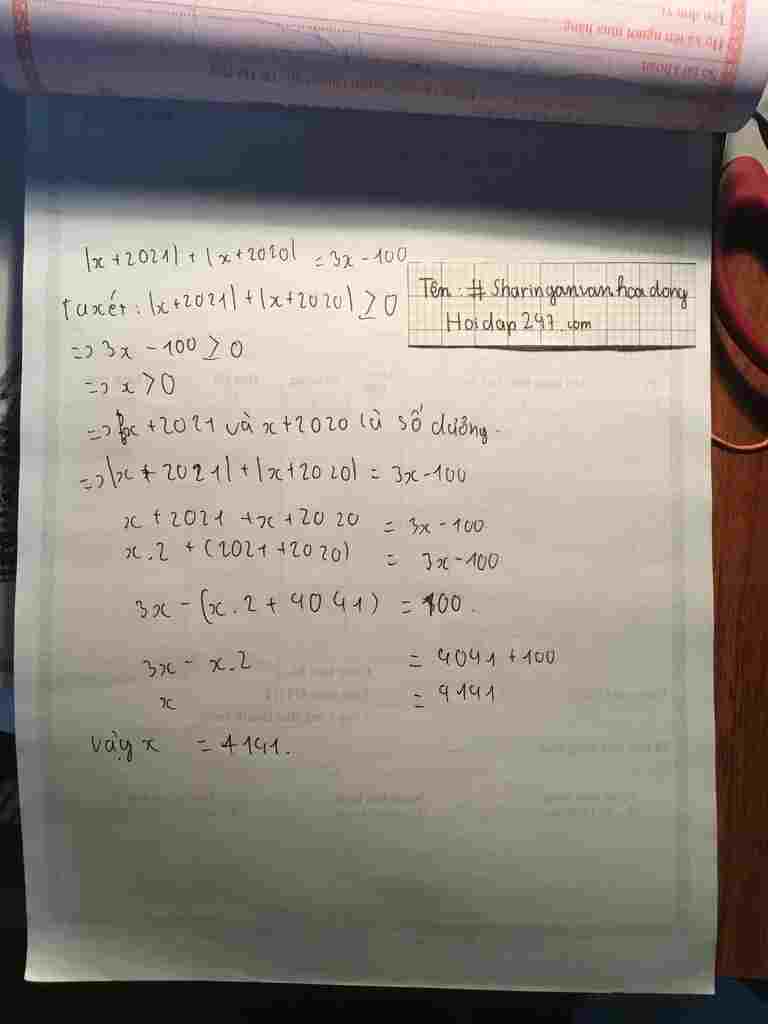 Họ và tên người mua hàng
Số tài khoản
|x + 2021| + |x + 2020| = 3x - 100
Tên: # Sharinganvanhoadong
Hoidap 247.com
Ta xét: |x + 2021| + |x + 2020| ≥ 0
=> 3x - 100 ≥ 0
=> x > 0
=> x + 2021 và x + 2020 là số dương.
=> |x + 2021| + |x + 2020| = 3x - 100
x + 2021 + x + 2020 = 3x - 100
x.2 + (2021 + 2020) = 3x - 100
3x - (x.2 + 4041) = 100.
3x - x.2 = 4041 + 100
x = 4141
vậy x = 4141.